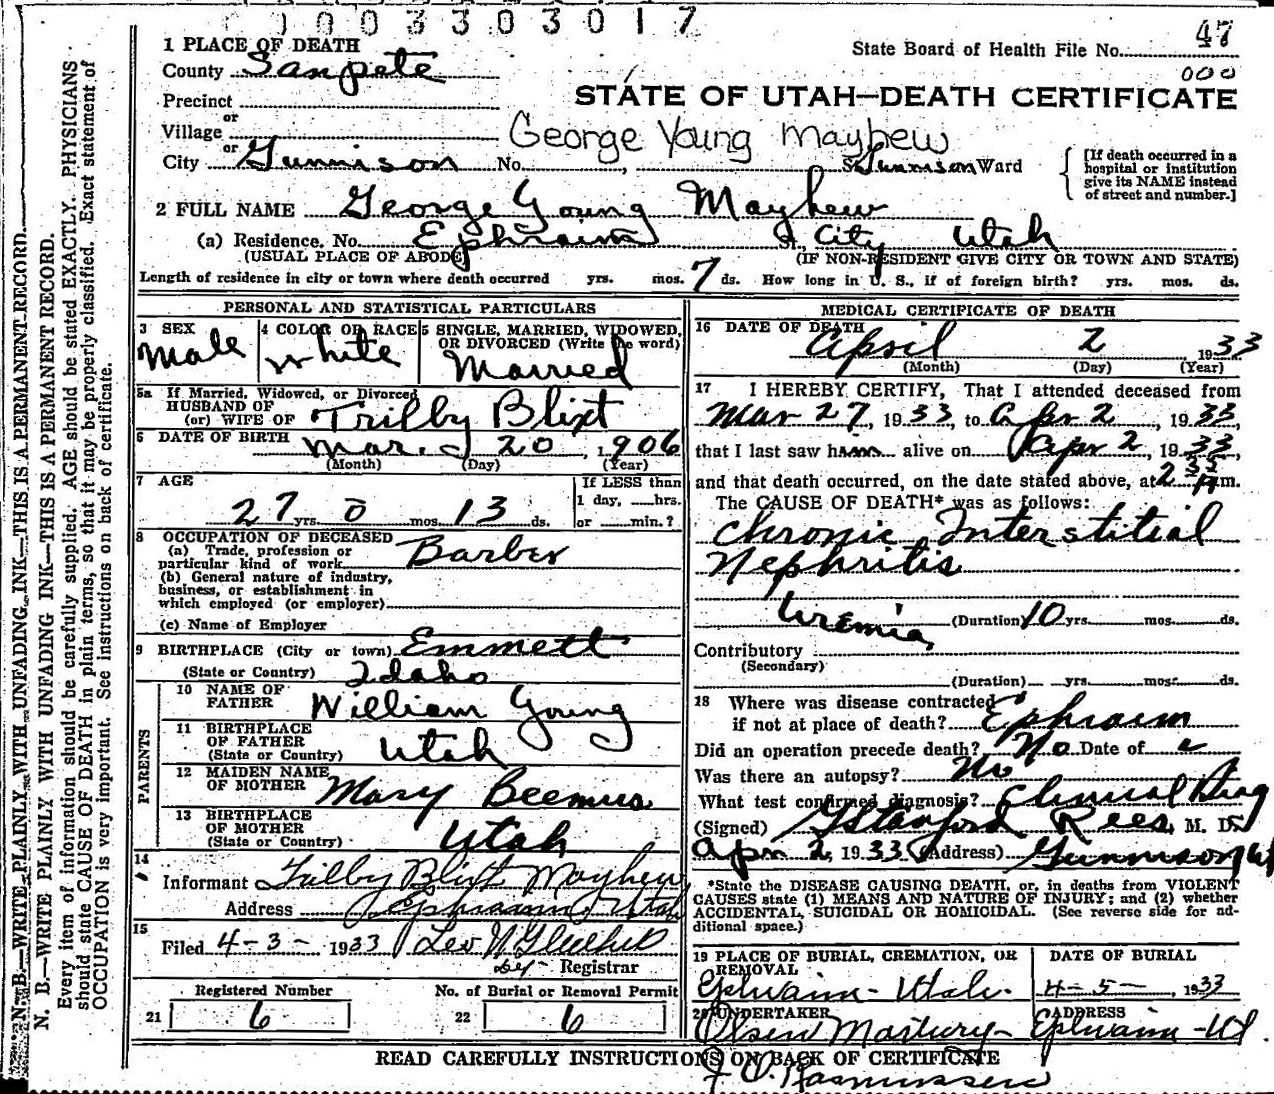 003303017
47
State Board of Health File No.
000
1 PLACE OF DEATH
County Sanpete
STATE OF UTAH—DEATH CERTIFICATE
Precinct
or
Village
George Young Mayhew
or
City Gunnison No. , S Gunnison Ward
[If death occurred in a hospital or institution give its NAME instead of street and number.]
2 FULL NAME George Young Mayhew
(a) Residence. No. Ephraim City Utah
(USUAL PLACE OF ABODE) (IF NON-RESIDENT GIVE CITY OR TOWN AND STATE)
Length of residence in city or town where death occurred yrs. mos. 7 ds. How long in U. S., if of foreign birth? yrs. mos. ds.
PERSONAL AND STATISTICAL PARTICULARS
3 SEX Male
4 COLOR OR RACE White
5 SINGLE, MARRIED, WIDOWED, OR DIVORCED (Write the word) Married
5a If Married, Widowed, or Divorced
HUSBAND OF
(or) WIFE OF Trilby Blixt
6 DATE OF BIRTH Mar. 20, 1906
(Month) (Day) (Year)
7 AGE
27 yrs. 0 mos. 13 ds.
If LESS than
1 day, hrs.
or min.?
8 OCCUPATION OF DECEASED
(a) Trade, profession or
particular kind of work Barber
(b) General nature of industry,
business, or establishment in
which employed (or employer)
(c) Name of Employer
9 BIRTHPLACE (City or town) Emmett
(State or Country) Idaho
PARENTS
10 NAME OF FATHER William Young
11 BIRTHPLACE OF FATHER (State or Country) Utah
12 MAIDEN NAME OF MOTHER Mary Beemus
13 BIRTHPLACE OF MOTHER (State or Country) Utah
14
Informant Trilby Blixt Mayhew
Address Ephraim, Utah
15
Filed 4-3-1933
by Registrar
Registered Number
21 6
No. of Burial or Removal Permit
22 6
MEDICAL CERTIFICATE OF DEATH
16 DATE OF DEATH
April 2 1933
(Month) (Day) (Year)
17 I HEREBY CERTIFY, That I attended deceased from
Mar 27, 1933, to Apr 2, 1933,
that I last saw him alive on Apr 2, 1933,
and that death occurred, on the date stated above, at 2 m.
The CAUSE OF DEATH* was as follows:
Chronic Interstitial
Nephritis
Uremia (Duration) 10 yrs. mos. ds.
Contributory
(Secondary)
(Duration) yrs. mos. ds.
18 Where was disease contracted
if not at place of death? Ephraim
Did an operation precede death? No Date of
Was there an autopsy? No
What test confirmed diagnosis? Clinical Diag
(Signed) G Stanford Rees, M. D.
Apr 2, 1933 (Address) Gunnison Ut
*State the DISEASE CAUSING DEATH, or, in deaths from VIOLENT
CAUSES state (1) MEANS AND NATURE OF INJURY; and (2) whether
ACCIDENTAL, SUICIDAL OR HOMICIDAL. (See reverse side for ad-
ditional space.)
19 PLACE OF BURIAL, CREMATION, OR REMOVAL
Ephraim-Utah.
DATE OF BURIAL
4-5-, 1933
20 UNDERTAKER
Olsen Mortury-
ADDRESS
Ephraim-Ut
READ CAREFULLY INSTRUCTIONS ON BACK OF CERTIFICATE
Rasmussen
N. B.—WRITE PLAINLY, WITH UNFADING INK—THIS IS A PERMANENT RECORD.
N. B.—WRITE PLAINLY WITH UNFADING INK—THIS IS A PERMANENT RECORD.
Every item of information should be carefully supplied. AGE should be stated EXACTLY. PHYSICIANS
should state CAUSE OF DEATH in plain terms, so that it may be properly classified. Exact statement of
OCCUPATION is very important. See instructions on back of certificate.